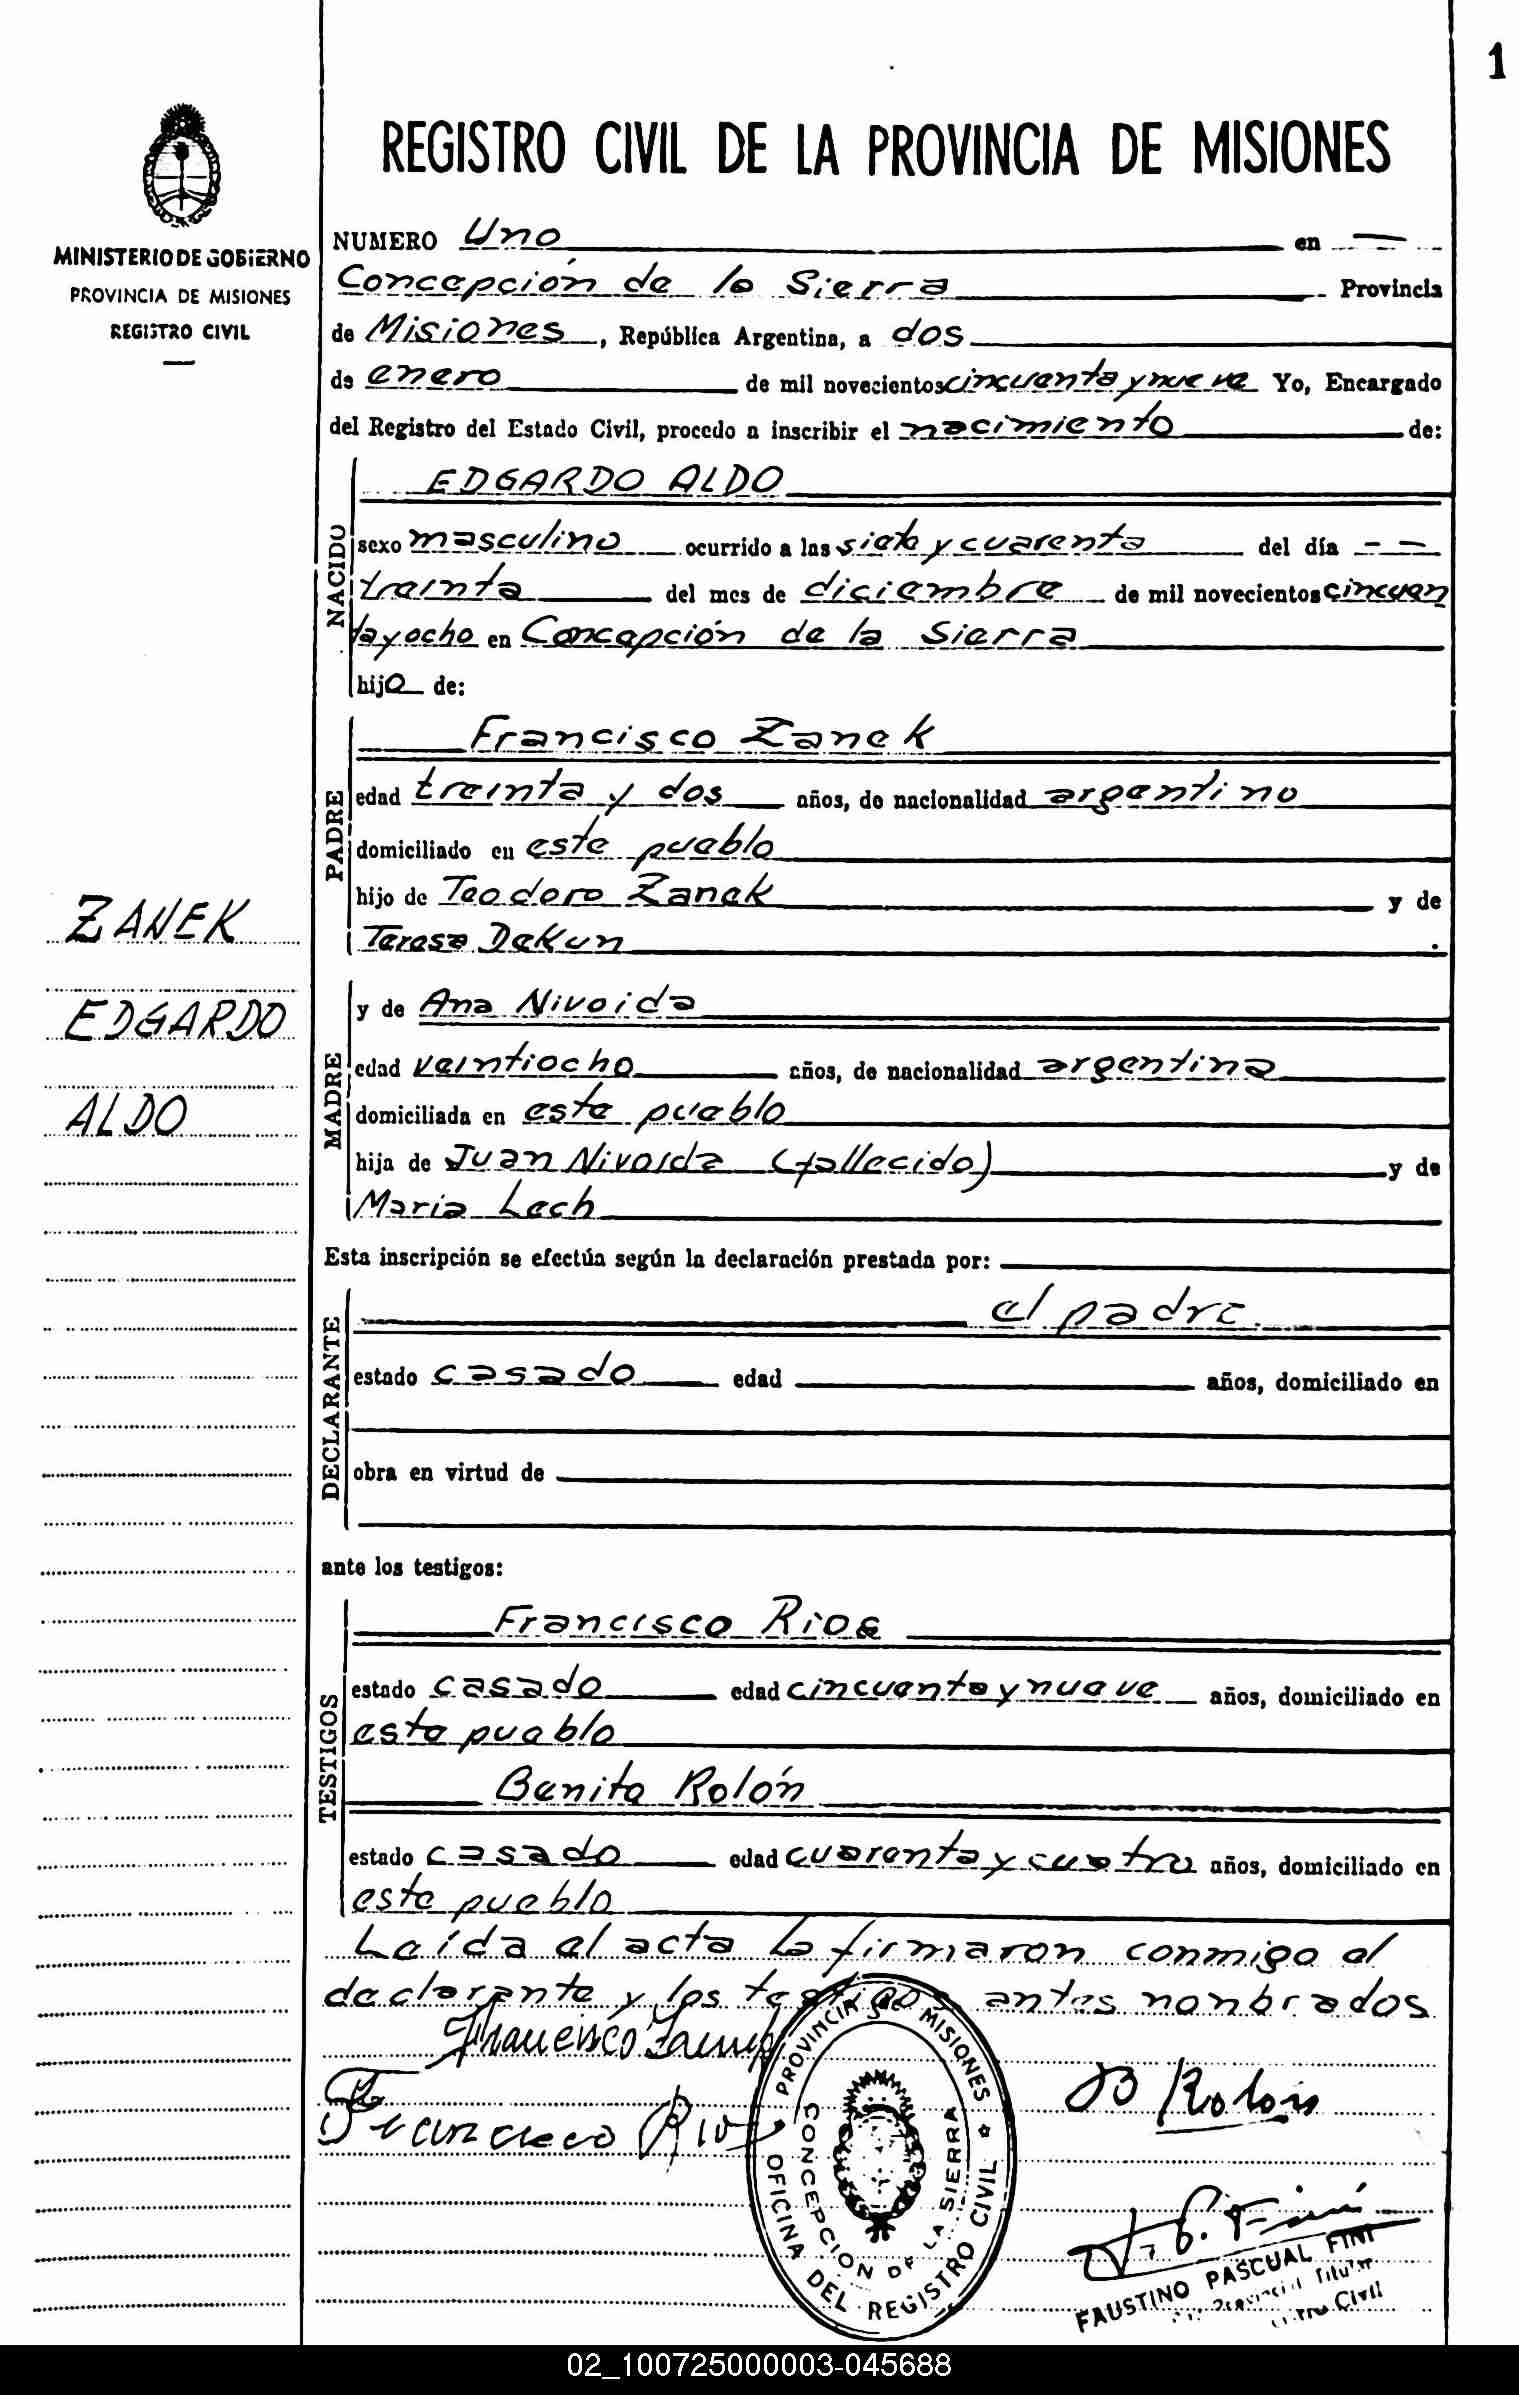 1
REGISTRO CIVIL DE LA PROVINCIA DE MISIONES
MINISTERIO DE GOBIERNO
PROVINCIA DE MISIONES
REGISTRO CIVIL
NUMERO Uno en
Concepción de la Sierra Provincia
de Misiones, República Argentina, a dos
de enero de mil novecientos cincuenta y nueve Yo, Encargado
del Registro del Estado Civil, procedo a inscribir el nacimiento de:
NACIDO
EDGARDO ALDO
sexo masculino ocurrido a las siete y cuarenta del día
treinta del mes de diciembre de mil novecientos cincuen
ta y ocho en Concepción de la Sierra
hijo de:
PADRE
Francisco Zanek
edad treinta y dos años, de nacionalidad argentino
domiciliado en este pueblo
hijo de Teodoro Zanek y de
Teresa Dekun
ZANEK
EDGARDO
ALDO
MADRE
y de Ana Nivoida
edad veintiocho años, de nacionalidad argentina
domiciliada en este pueblo
hija de Juan Nivoida (fallecido) y de
Maria Lech
Esta inscripción se efectúa según la declaración prestada por:
DECLARANTE
el padre.
estado casado edad años, domiciliado en
obra en virtud de
ante los testigos:
TESTIGOS
Francisco Rios
estado casado edad cincuenta y nueve años, domiciliado en
este pueblo
Benito Rolón
estado casado edad cuarenta y cuatro años, domiciliado en
este pueblo
Leída el acta la firmaron conmigo el
declarante y los testigos antes nonbrados
Francisco
Francisco Rios
B Rolón
PROVINCIA DE MISIONES
OFICINA DEL REGISTRO CIVIL
CONCEPCION DE LA SIERRA
FAUSTINO PASCUAL FINI
Titular
Civil
02_100725000003-045688